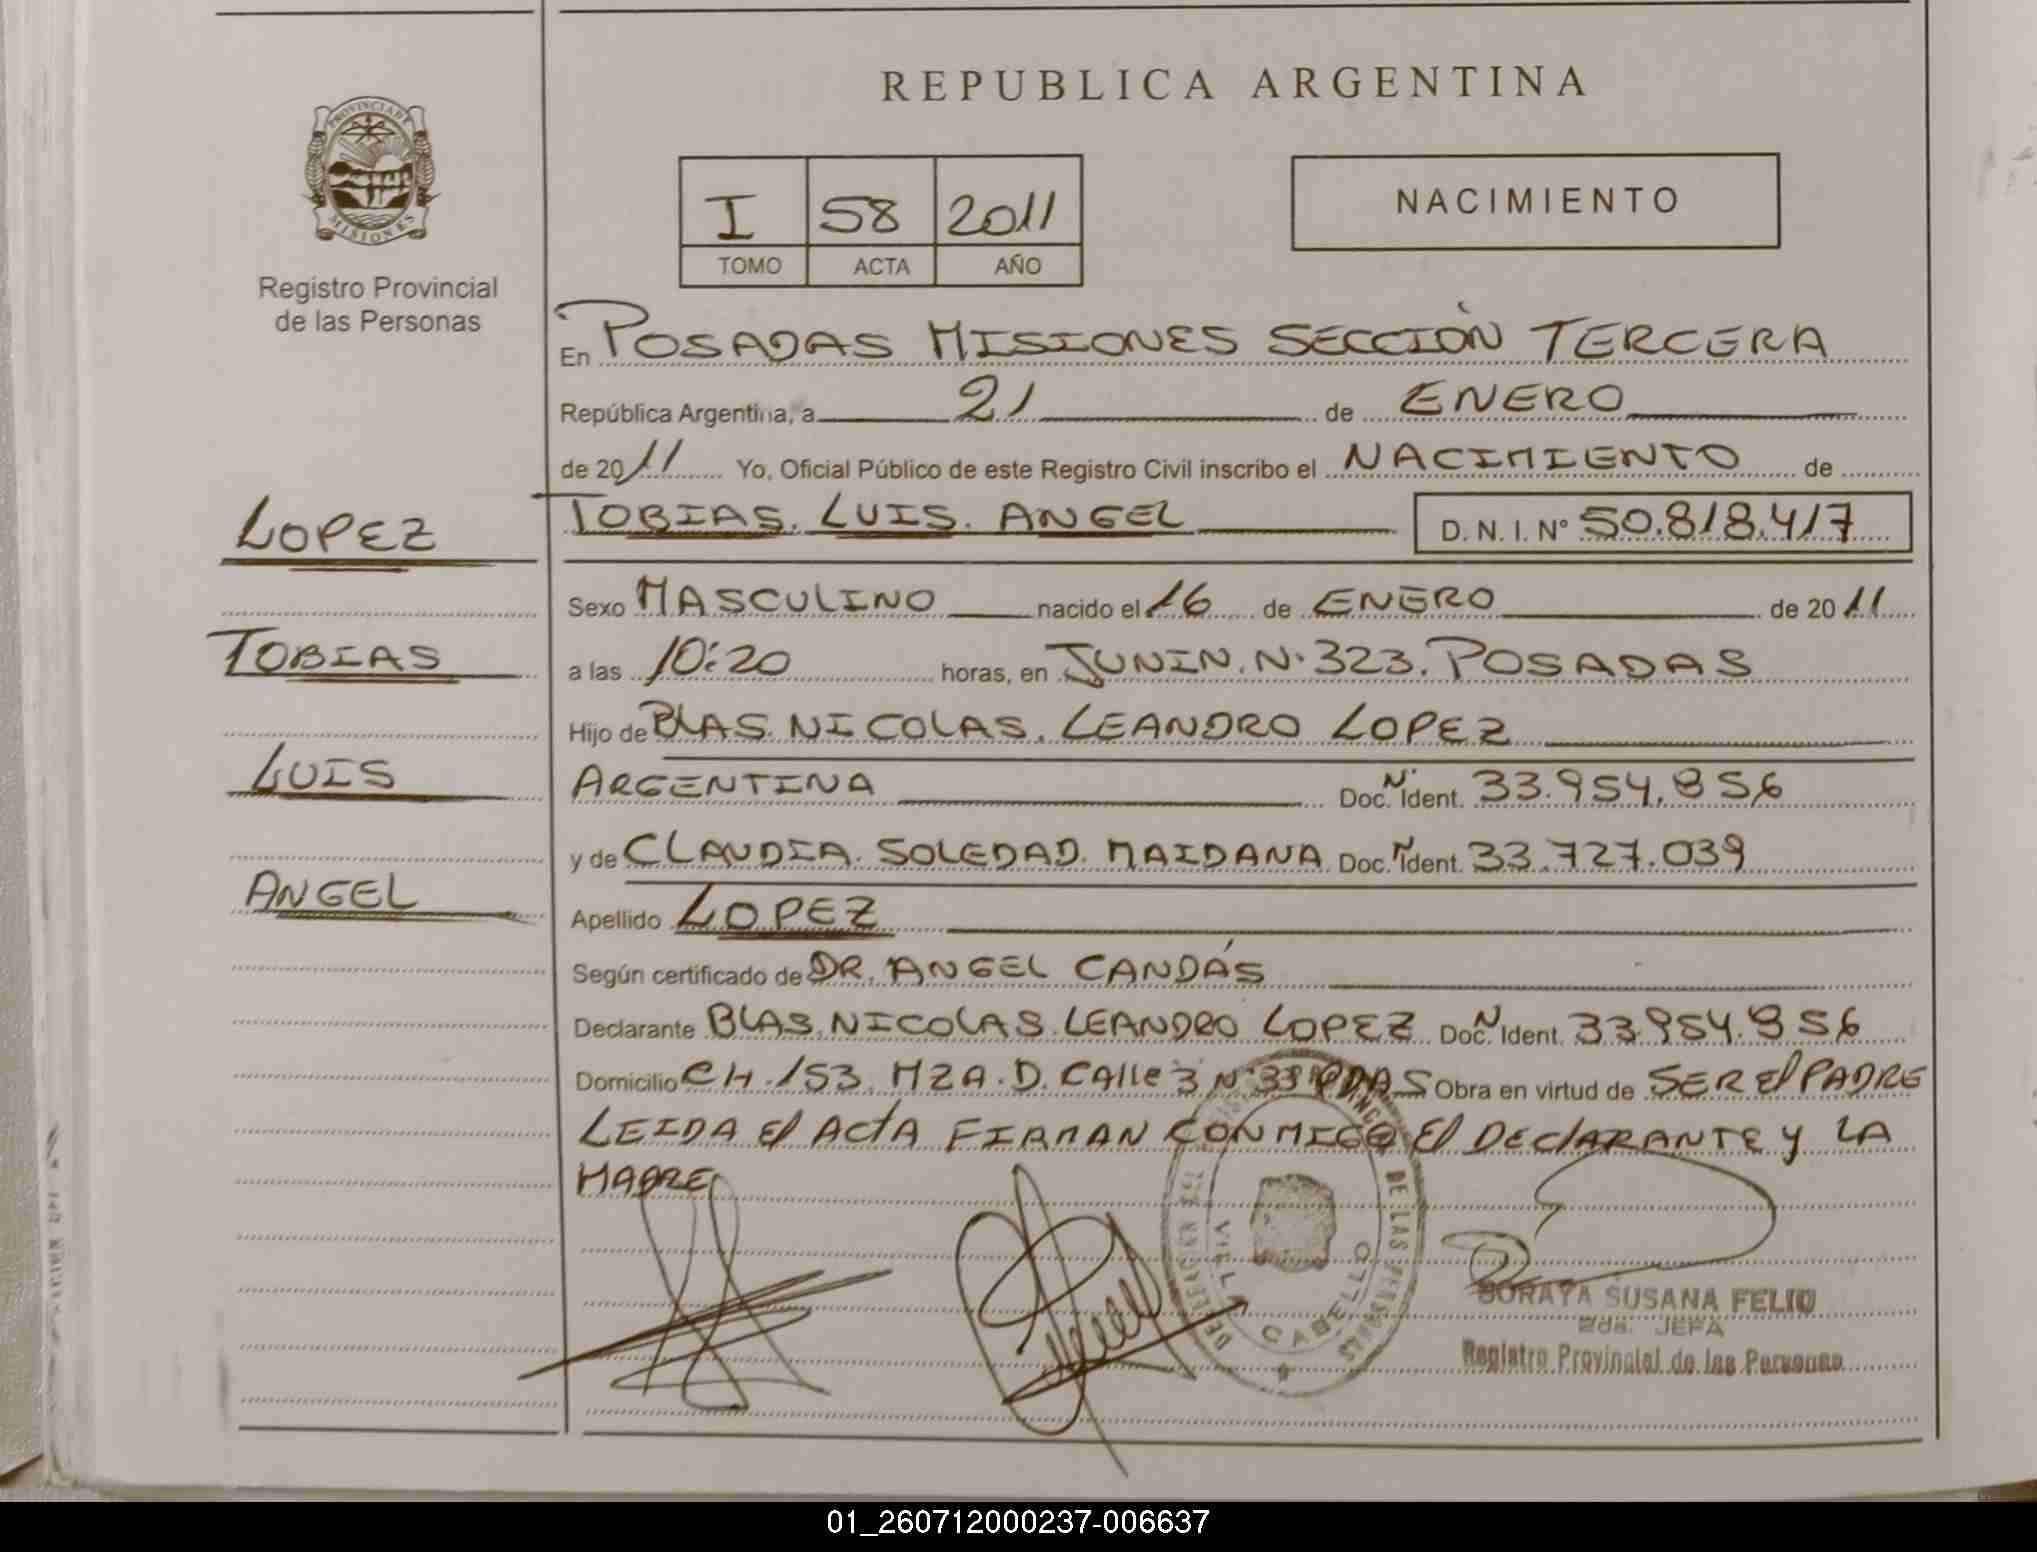 REPUBLICA ARGENTINA
PROVINCIA DE
MISIONES
Registro Provincial
de las Personas
I 58 2011
TOMO ACTA AÑO
NACIMIENTO
En POSADAS MISIONES SECCIÓN TERCERA
República Argentina, a 21 de ENERO
de 2011 Yo, Oficial Público de este Registro Civil inscribo el NACIMIENTO de
TOBIAS. LUIS. ANGEL D. N. I. Nº 50.818.417
LOPEZ
TOBIAS
LUIS
ANGEL
Sexo MASCULINO nacido el 16 de ENERO de 2011
a las 10:20 horas, en JUNIN. N. 323. POSADAS
Hijo de BLAS. NICOLAS. LEANDRO LOPEZ
ARGENTINA Doc. Nº Ident. 33.954.856
y de CLAUDIA. SOLEDAD. MAIDANA Doc. Nº Ident. 33.727.039
Apellido LOPEZ
Según certificado de DR. ANGEL CANDÁS
Declarante BLAS. NICOLAS. LEANDRO LOPEZ Doc. N Ident. 33.954.856
Domicilio CH. 153. MZA. D. CAlle 3 Nº 33 PDAS Obra en virtud de SER El PADRE
LEIDA El ActA FIRMAN CONMIGO El DEClARANTE y LA
MADRE
DELEGACION DEL DE LAS PERSONAS
VILLA CABELLO
SORAYA SUSANA FELIU
2da. JEFA
Registro Provincial de las Personas
01_260712000237-006637